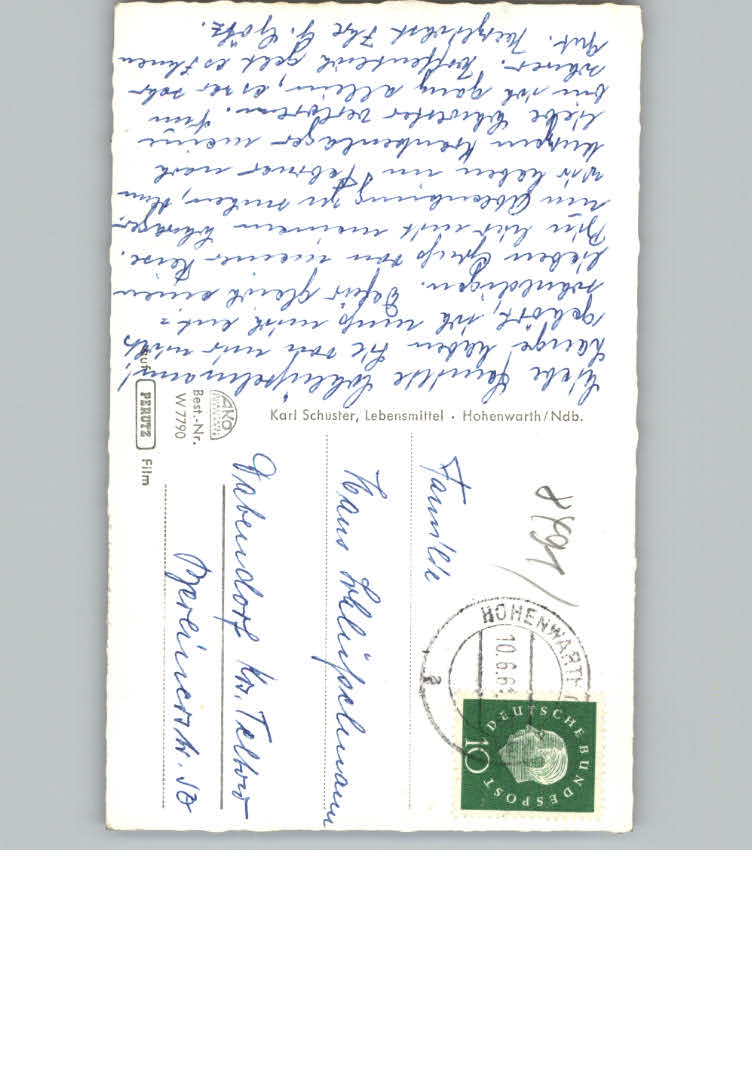 Liebe Familie Schlüsselmann!
Lange haben Sie von mir nichts
gehört, ich muß mich ent-
schuldigen. Dafür gleich einen
lieben Gruß von meiner Reise.
Bin hier mit meinem Schwager
um Ablenkung zu suchen, denn
wir haben im Februar nach
kurzem Krankenlager meine
liebe Schwester verloren. Nun
bin ich ganz allein, es ist sehr
schwer. Hoffentlich geht es Ihnen
gut. Herzlichst Ihre G. Götz.
Karl Schuster, Lebensmittel · Hohenwarth/Ndb.
Aka
Best.-Nr.
W 7790
Auf
PERUTZ
Film
8491
HOHENWARTH
10.6.6
a
DEUTSCHE BUNDESPOST
10
Familie
Hans Schlüsselmann
Dabendorf Krs. Teltow
Berlinerstr. 50